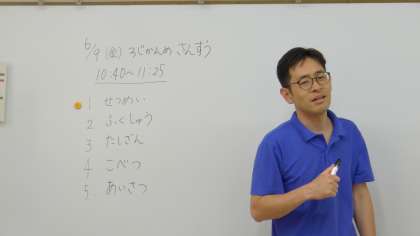 6/9 (金) 3じかんめ さんすう
10:40〜11:25
1 せつめい
2 ふくしゅう
3 たしざん
4 こべつ
5 あいさつ